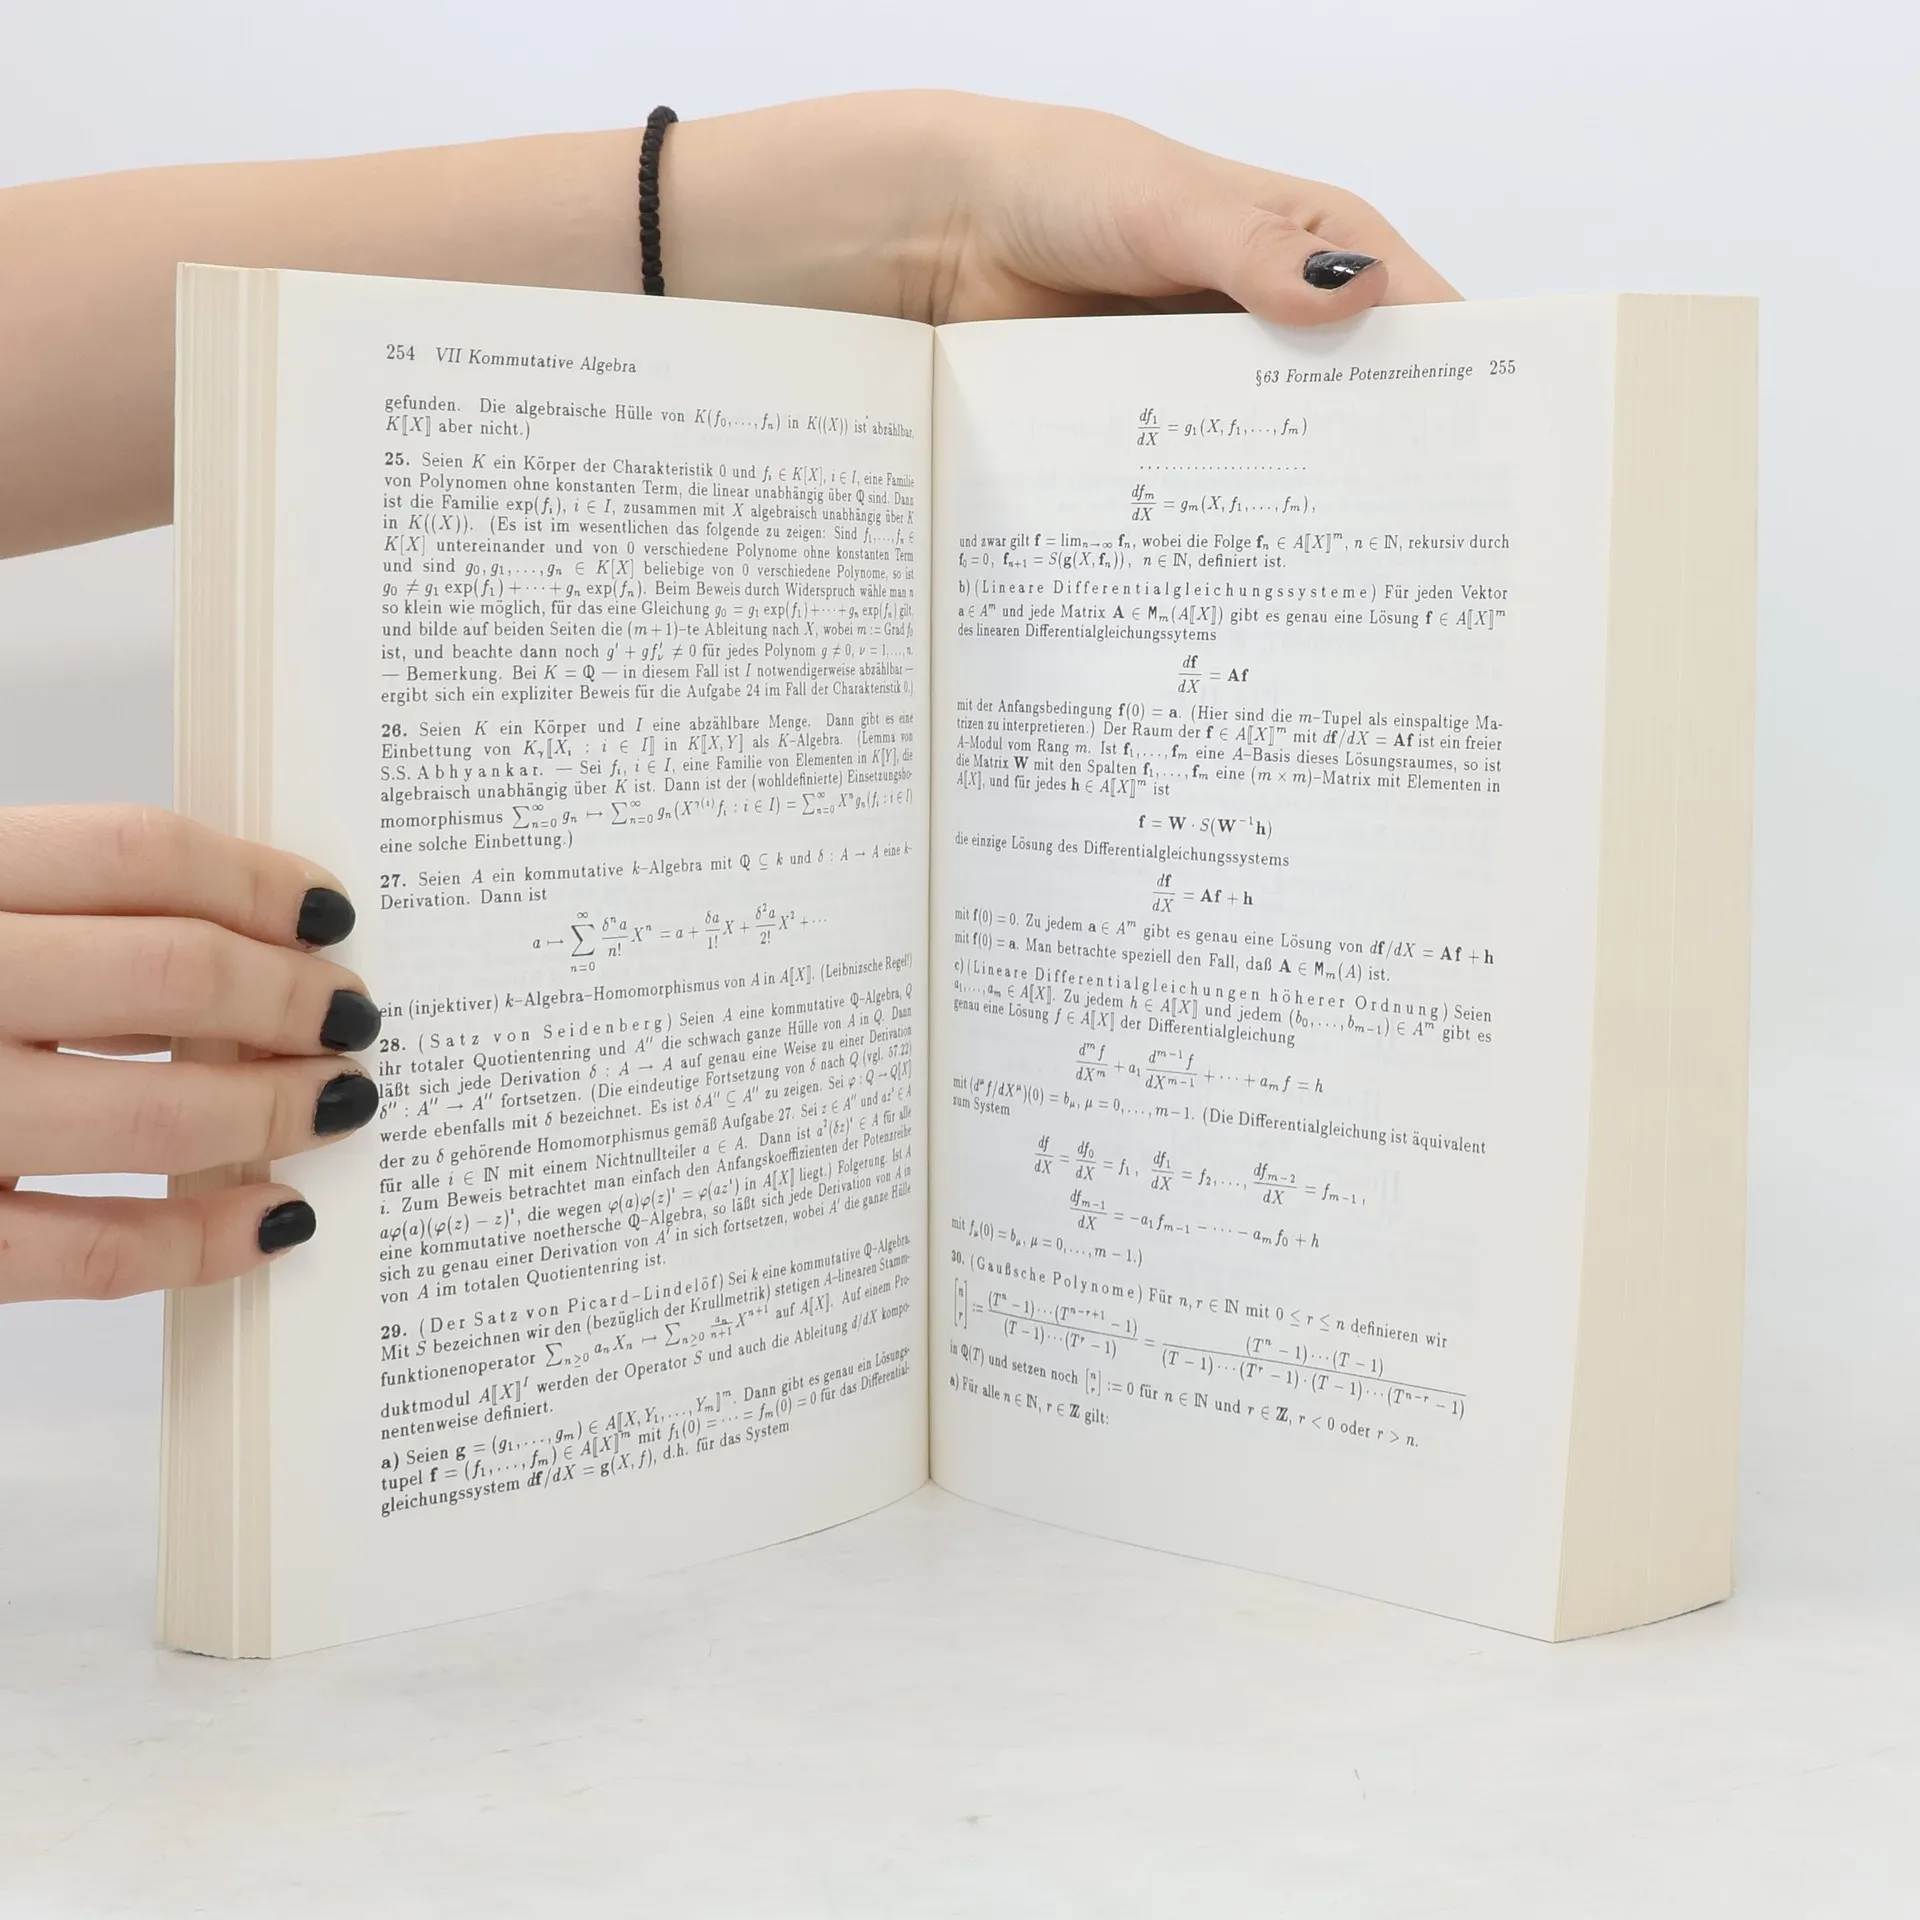 254 VII Kommutative Algebra
gefunden. Die algebraische Hülle von K(f₀,...,fₙ) in K((X)) ist abzählbar,
K⟦X⟧ aber nicht.)
25. Seien K ein Körper der Charakteristik 0 und fᵢ ∈ K[X], i ∈ I, eine Familie
von Polynomen ohne konstanten Term, die linear unabhängig über ℚ sind. Dann
ist die Familie exp(fᵢ), i ∈ I, zusammen mit X algebraisch unabhängig über K
in K((X)). (Es ist im wesentlichen das folgende zu zeigen: Sind f₁,...,fₙ ∈
K[X] untereinander und von 0 verschiedene Polynome ohne konstanten Term
und sind g₀, g₁,...,gₙ ∈ K[X] beliebige von 0 verschiedene Polynome, so ist
g₀ ≠ g₁ exp(f₁)+···+gₙ exp(fₙ). Beim Beweis durch Widerspruch wähle man n
so klein wie möglich, für das eine Gleichung g₀ = g₁ exp(f₁)+···+gₙ exp(fₙ) gilt,
und bilde auf beiden Seiten die (m+1)-te Ableitung nach X, wobei m := Grad f₀
ist, und beachte dann noch g' + gf'ᵥ ≠ 0 für jedes Polynom g ≠ 0, ν = 1,...,n.
— Bemerkung. Bei K = ℚ — in diesem Fall ist I notwendigerweise abzählbar —
ergibt sich ein expliziter Beweis für die Aufgabe 24 im Fall der Charakteristik 0.)
26. Seien K ein Körper und I eine abzählbare Menge. Dann gibt es eine
Einbettung von Kᵧ⟦Xᵢ : i ∈ I⟧ in K⟦X,Y⟧ als K–Algebra. (Lemma von
S.S. Abhyankar. — Sei fᵢ, i ∈ I, eine Familie von Elementen in K⟦Y⟧, die
algebraisch unabhängig über K ist. Dann ist der (wohldefinierte) Einsetzungsho-
momorphismus ∑ₙ₌₀^∞ gₙ ↦ ∑ₙ₌₀^∞ gₙ(X^γ(i) fᵢ : i ∈ I) = ∑ₙ₌₀^∞ Xⁿgₙ(fᵢ : i ∈ I)
eine solche Einbettung.)
27. Seien A ein kommutative k–Algebra mit ℚ ⊆ k und δ : A → A eine k-
Derivation. Dann ist
a ↦ ∑ₙ₌₀^∞ δⁿa/n! Xⁿ = a + δa/1! X + δ²a/2! X² + ···
ein (injektiver) k–Algebra–Homomorphismus von A in A⟦X⟧. (Leibnizsche Regel!)
28. (Satz von Seidenberg) Seien A eine kommutative ℚ–Algebra, Q
ihr totaler Quotientenring und A'' die schwach ganze Hülle von A in Q. Dann
läßt sich jede Derivation δ : A → A auf genau eine Weise zu einer Derivation
δ'' : A'' → A'' fortsetzen. (Die eindeutige Fortsetzung von δ nach Q (vgl. 57.22)
werde ebenfalls mit δ bezeichnet. Es ist δA'' ⊆ A'' zu zeigen. Sei φ : Q → Q⟦X⟧
der zu δ gehörende Homomorphismus gemäß Aufgabe 27. Sei z ∈ A'' und azⁱ ∈ A
für alle i ∈ ℕ mit einem Nichtnullteiler a ∈ A. Dann ist a²(δz)ⁱ ∈ A für alle
i. Zum Beweis betrachtet man einfach den Anfangskoeffizienten der Potenzreihe
aφ(a)(φ(z) − z)ⁱ, die wegen φ(a)φ(z)ⁱ = φ(azⁱ) in A⟦X⟧ liegt.) Folgerung. Ist A
eine kommutative noethersche ℚ–Algebra, so läßt sich jede Derivation von A in
sich zu genau einer Derivation von A' in sich fortsetzen, wobei A' die ganze Hülle
von A im totalen Quotientenring ist.
29. (Der Satz von Picard–Lindelöf) Sei k eine kommutative ℚ–Algebra.
Mit S bezeichnen wir den (bezüglich der Krullmetrik) stetigen A–linearen Stamm-
funktionenoperator ∑ₙ≥₀ aₙXₙ ↦ ∑ₙ≥₀ aₙ/(n+1) Xⁿ⁺¹ auf A⟦X⟧. Auf einem Pro-
duktmodul A⟦X⟧ᴵ werden der Operator S und auch die Ableitung d/dX kompo-
nentenweise definiert.
a) Seien g = (g₁,...,gₘ) ∈ A⟦X,Y₁,...,Yₘ⟧ᵐ. Dann gibt es genau ein Lösungs-
tupel f = (f₁,...,fₘ) ∈ A⟦X⟧ᵐ mit f₁(0) = ··· = fₘ(0) = 0 für das Differential-
gleichungssystem df/dX = g(X, f), d.h. für das System
§63 Formale Potenzreihenringe 255
df₁/dX = g₁(X, f₁,..., fₘ)
.....................
dfₘ/dX = gₘ(X, f₁,..., fₘ),
und zwar gilt f = limₙ→∞ fₙ, wobei die Folge fₙ ∈ A⟦X⟧ᵐ, n ∈ ℕ, rekursiv durch
f₀ = 0, fₙ₊₁ = S(g(X, fₙ)), n ∈ ℕ, definiert ist.
b) (Lineare Differentialgleichungssysteme) Für jeden Vektor
a ∈ Aᵐ und jede Matrix A ∈ Mₘ(A⟦X⟧) gibt es genau eine Lösung f ∈ A⟦X⟧ᵐ
des linearen Differentialgleichungssytems
df/dX = Af
mit der Anfangsbedingung f(0) = a. (Hier sind die m–Tupel als einspaltige Ma-
trizen zu interpretieren.) Der Raum der f ∈ A⟦X⟧ᵐ mit df/dX = Af ist ein freier
A–Modul vom Rang m. Ist f₁,..., fₘ eine A–Basis dieses Lösungsraumes, so ist
die Matrix W mit den Spalten f₁,..., fₘ eine (m × m)–Matrix mit Elementen in
A⟦X⟧, und für jedes h ∈ A⟦X⟧ᵐ ist
f = W · S(W⁻¹h)
die einzige Lösung des Differentialgleichungssystems
df/dX = Af + h
mit f(0) = 0. Zu jedem a ∈ Aᵐ gibt es genau eine Lösung von df/dX = Af + h
mit f(0) = a. Man betrachte speziell den Fall, daß A ∈ Mₘ(A) ist.
c) (Lineare Differentialgleichungen höherer Ordnung) Seien
a₁,..., aₘ ∈ A⟦X⟧. Zu jedem h ∈ A⟦X⟧ und jedem (b₀,..., bₘ₋₁) ∈ Aᵐ gibt es
genau eine Lösung f ∈ A⟦X⟧ der Differentialgleichung
dᵐf/dXᵐ + a₁ dᵐ⁻¹f/dXᵐ⁻¹ + ··· + aₘf = h
mit (d^μ f/dX^μ)(0) = b_μ, μ = 0,..., m−1. (Die Differentialgleichung ist äquivalent
zum System
df/dX = df₀/dX = f₁, df₁/dX = f₂,..., dfₘ₋₂/dX = fₘ₋₁,
dfₘ₋₁/dX = −a₁fₘ₋₁ − ··· − aₘf₀ + h
mit f_μ(0) = b_μ, μ = 0,..., m − 1.)
30. (Gaußsche Polynome) Für n, r ∈ ℕ mit 0 ≤ r ≤ n definieren wir
[n r] := (Tⁿ − 1)···(Tⁿ⁻ʳ⁺¹ − 1)/(T − 1)···(Tʳ − 1) = (Tⁿ − 1)···(T − 1)/(T − 1)···(Tʳ − 1)·(T − 1)···(Tⁿ⁻ʳ − 1)
in ℚ(T) und setzen noch [n r] := 0 für n ∈ ℕ und r ∈ ℤ, r < 0 oder r > n.
a) Für alle n ∈ ℕ, r ∈ ℤ gilt: